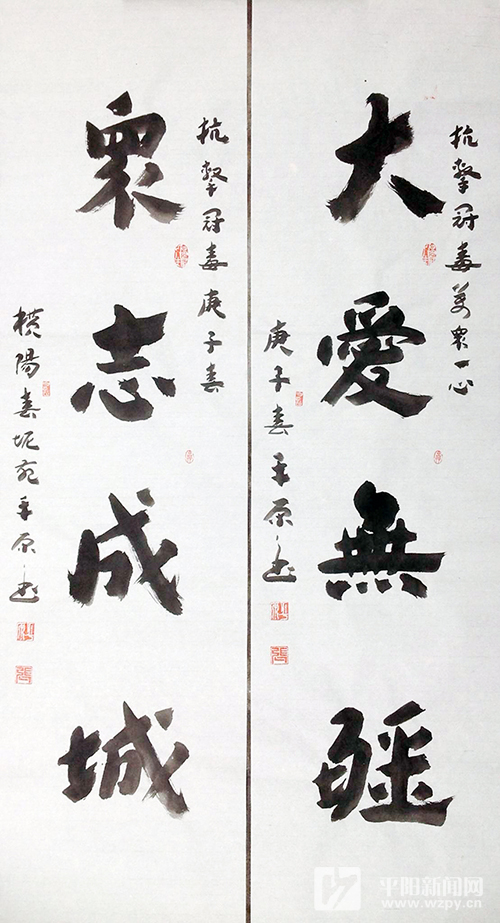 大愛無疆
抗擊冠毒萬眾一心
庚子春平原
衆志成城
抗擊冠毒庚子春
橫陽春坭苑平原
平阳新闻网
www.wzpy.cn